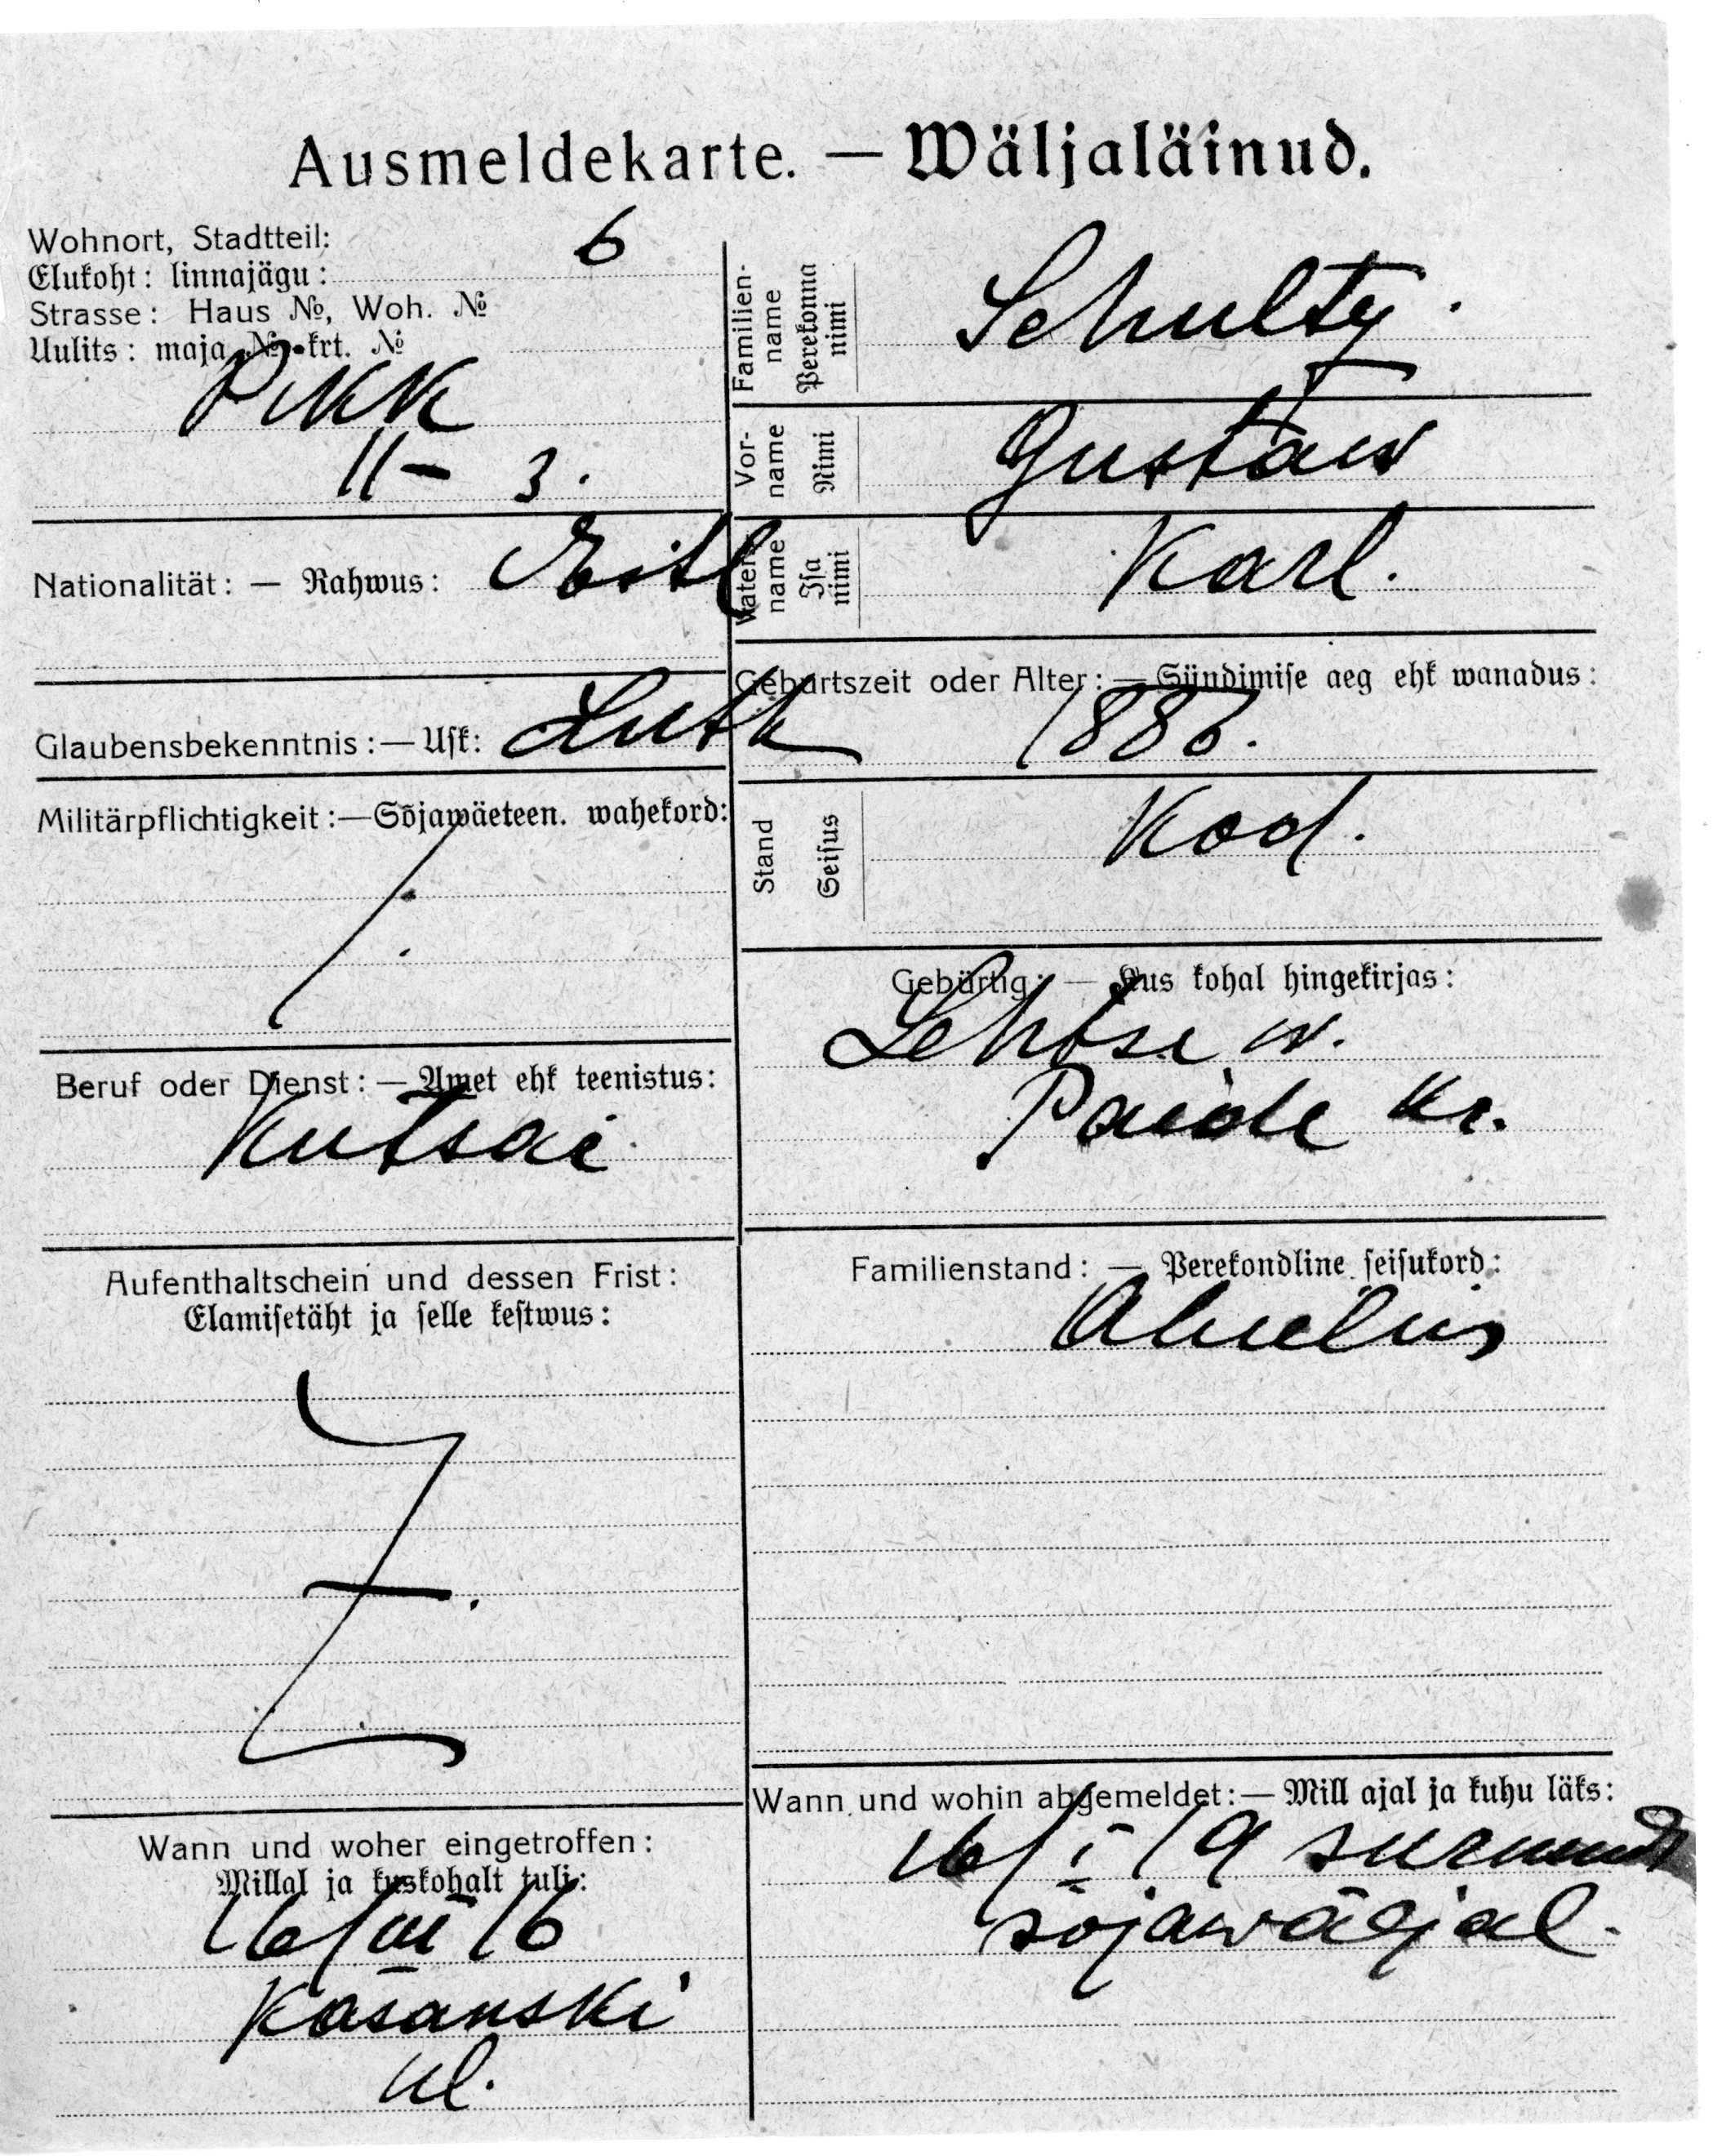 Ausmeldekarte. — Wäljaläinud.
Wohnort, Stadtteil: 6
Elukoht: linnajägu:
Strasse: Haus №, Woh. №
Uulits: maja № krt. №
Pikk
11 – 3.
Nationalität: — Rahwus: Eestl
Glaubensbekenntnis: — Usk: Luth
Militärpflichtigkeit: — Sõjawäeteen. wahekord:
Beruf oder Dienst: — Amet ehk teenistus:
Kutsar
Aufenthaltschein und dessen Frist:
Elamisetäht ja selle kestwus:
Wann und woher eingetroffen:
Millal ja kuskohalt tuli:
16/VII 16
Kasanski
ul.
Familien-
name
Perekonna
nimi
Schultz.
Vor-
name
Nimi
Gustaw
Vaters
name
Isa
nimi
Karl.
Geburtszeit oder Alter: — Sündimise aeg ehk wanadus:
1886.
Stand
Seisus
Kod.
Gebürtig: — Kus kohal hingekirjas:
Lehtse w.
Paide kr.
Familienstand: — Perekondline seisukord:
Abielus
Wann und wohin abgemeldet: — Mill ajal ja kuhu läks:
16/I 19 surnud
sõjawäljal.